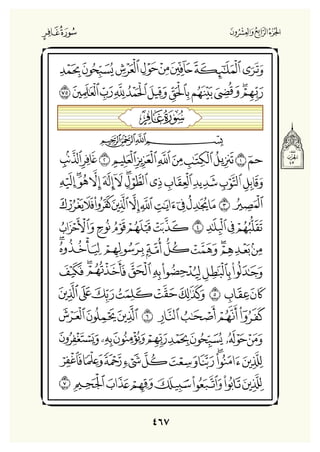 الجزء الرابع والعشرون
سورة غافر
وترى الملائكة حافين من حول العرش يسبحون بحمد
ربهم وقضي بينهم بالحق وقيل الحمد لله رب العالمين ٧٥
سورة غافر
بسم الله الرحمن الرحيم
حم ١ تنزيل الكتاب من الله العزيز العليم ٢ غافر الذنب
وقابل التوب شديد العقاب ذي الطول لا إله إلا هو إليه
المصير ٣ ما يجادل في آيات الله إلا الذين كفروا فلا يغررك
تقلبهم في البلاد ٤ كذبت قبلهم قوم نوح والأحزاب
من بعدهم وهمت كل أمة برسولهم ليأخذوه
وجادلوا بالباطل ليدحضوا به الحق فأخذتهم فكيف
كان عقاب ٥ وكذلك حقت كلمت ربك على الذين
كفروا أنهم أصحاب النار ٦ الذين يحملون العرش
ومن حوله يسبحون بحمد ربهم ويؤمنون به ويستغفرون
للذين آمنوا ربنا وسعت كل شيء رحمة وعلما فاغفر
للذين تابوا واتبعوا سبيلك وقهم عذاب الجحيم ٧
٤٦٧